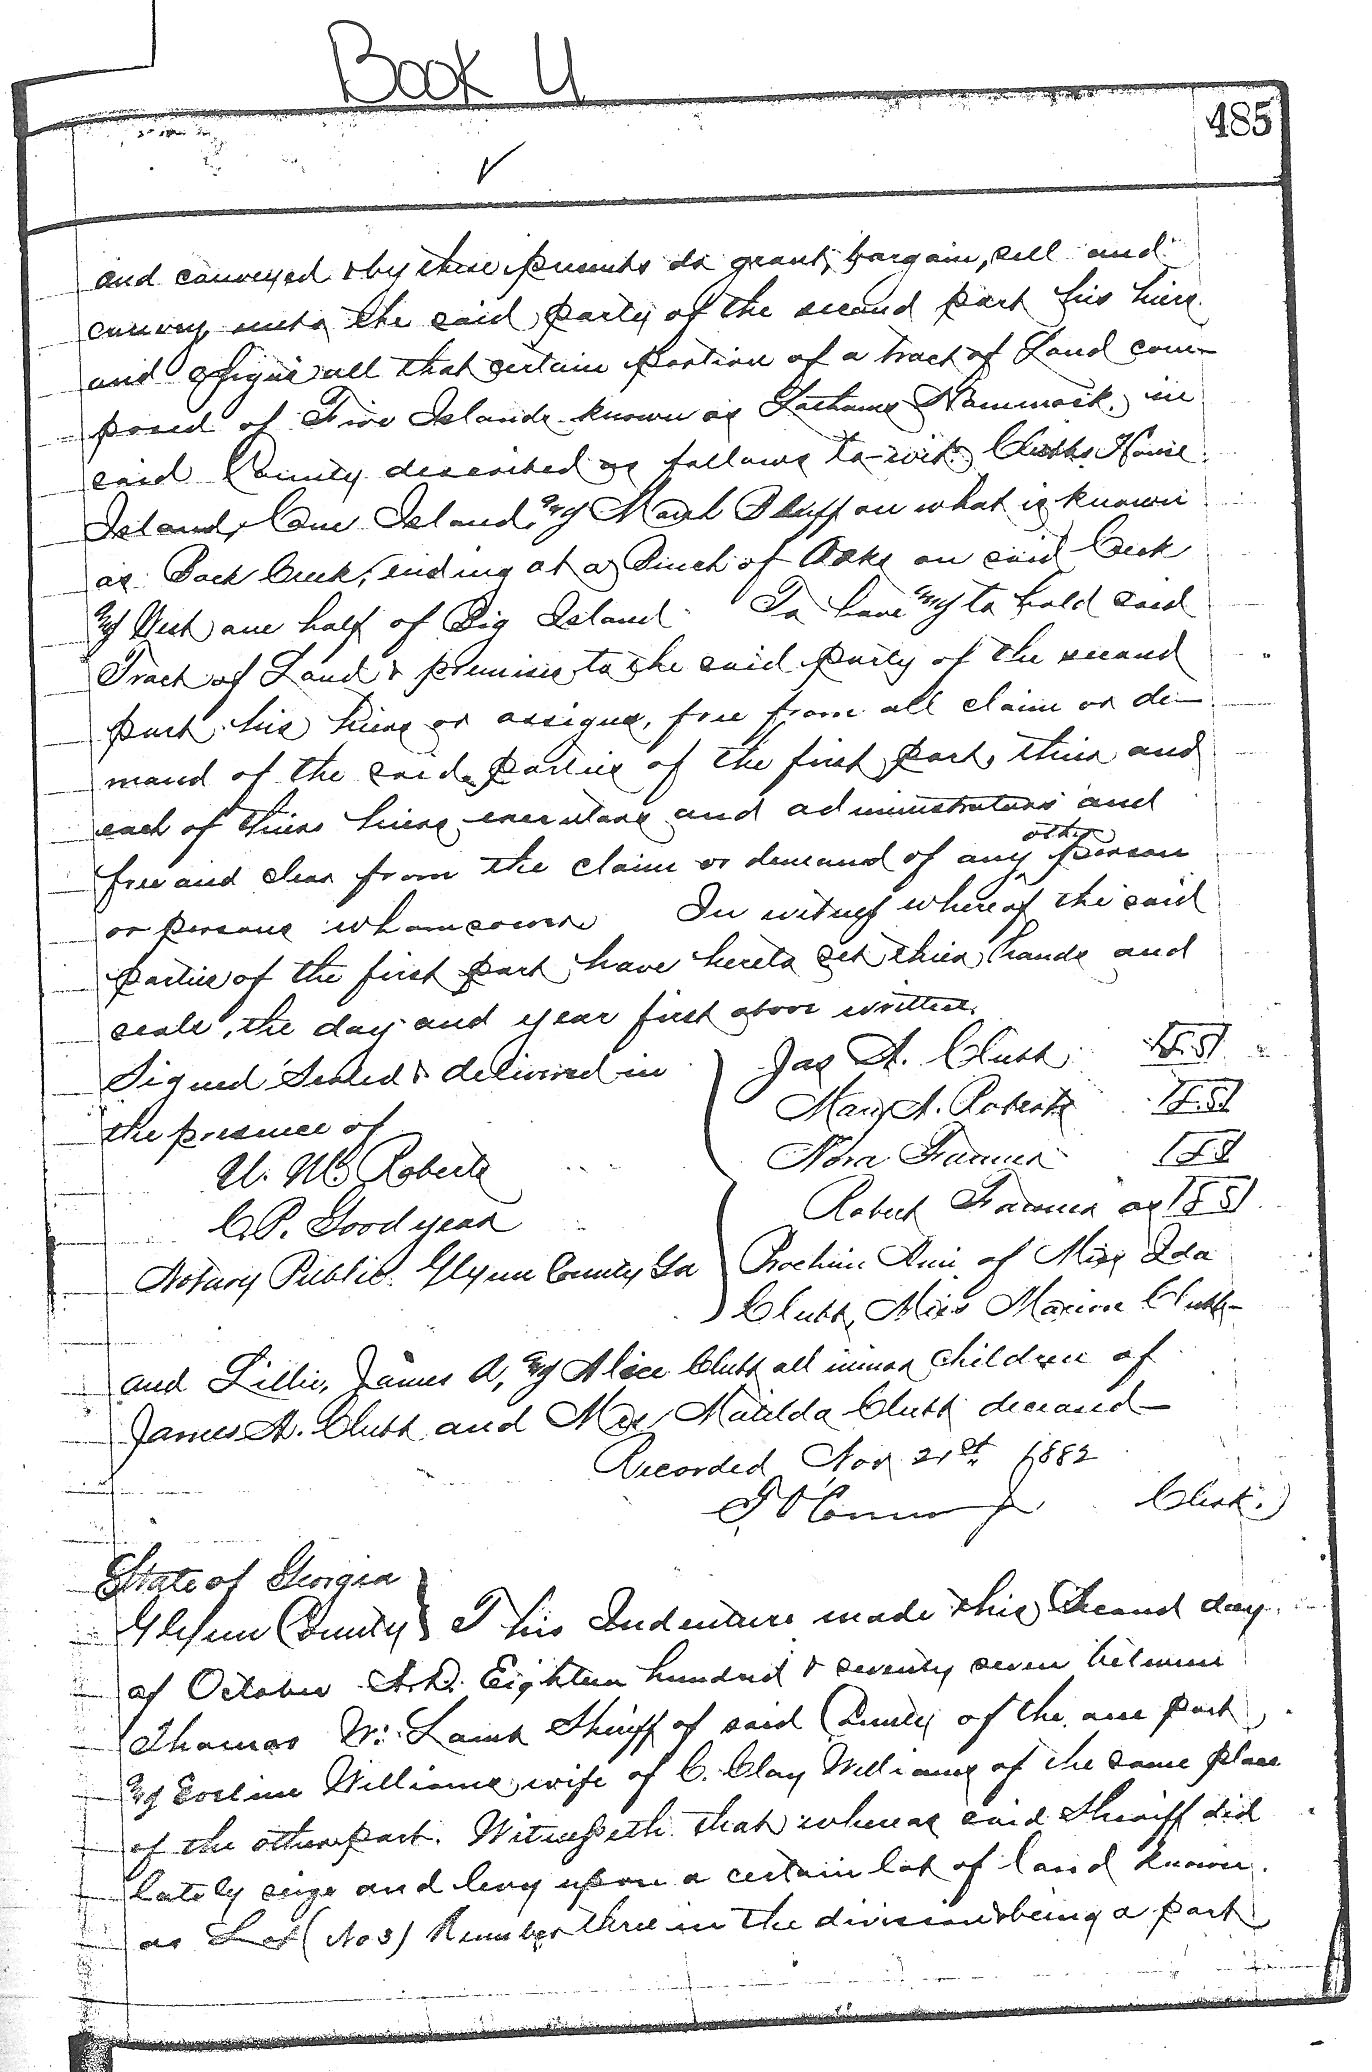 Book U
485
and conveyed & by these presents do grant, bargain, sell and
convey, unto the said party of the second part his hiers
and assigns all that certain portion of a tract of Land com-
posed of Five Islands known as Lathams Hammock, in
said County described as follows to-wit: Clubbs Home
Island, One Island, and Marsh Bluff on what is known
as Back Creek, ending at a Bunch of Oaks on said Creek
and West one half of Big Island To have and to hold said
Tract of Land & premises to the said party of the second
part his hiers or assigns, free from all claim or de-
mand of the said parties of the first part, thier and
each of thiers hiers executors and administrators and
free and clear from the claim or demand of any other person
or persons whomsoever In witness whereof the said
parties of the first part have hereto set thier hands and
seals, the day and year first above written.
Signed Sealed & delivered in
the presence of
U. M. Roberts
C. P. Goodyear
Notary Public Glynn County Ga
Jas A. Clubb L.S.
Mary A. Roberts L.S.
Nora Farmer L.S.
Robert Farmer as L.S.
Prochein Ami of Miss Ida
Clubb, Miss Marion Clubb-
and Lillie, James A, and Alice Clubb all minor children of
James A. Clubb and Mrs Matilda Clubb deceased-
Recorded Nov 21st 1882
J O'Connor Jr Clerk.
State of Georgia
Glynn County This Indenture made this Second day
of October A.D. Eighteen hundred & seventy seven between
Thomas W. Lamb Sheriff of said County of the one part,
and Eveline Williams wife of C. Clay Williams of the same place
of the other part. Witnesseth that whereas said Sheriff did
lately seize and levy upon a certain lot of land known
as Lot (No 3) Number three in the division & being a part